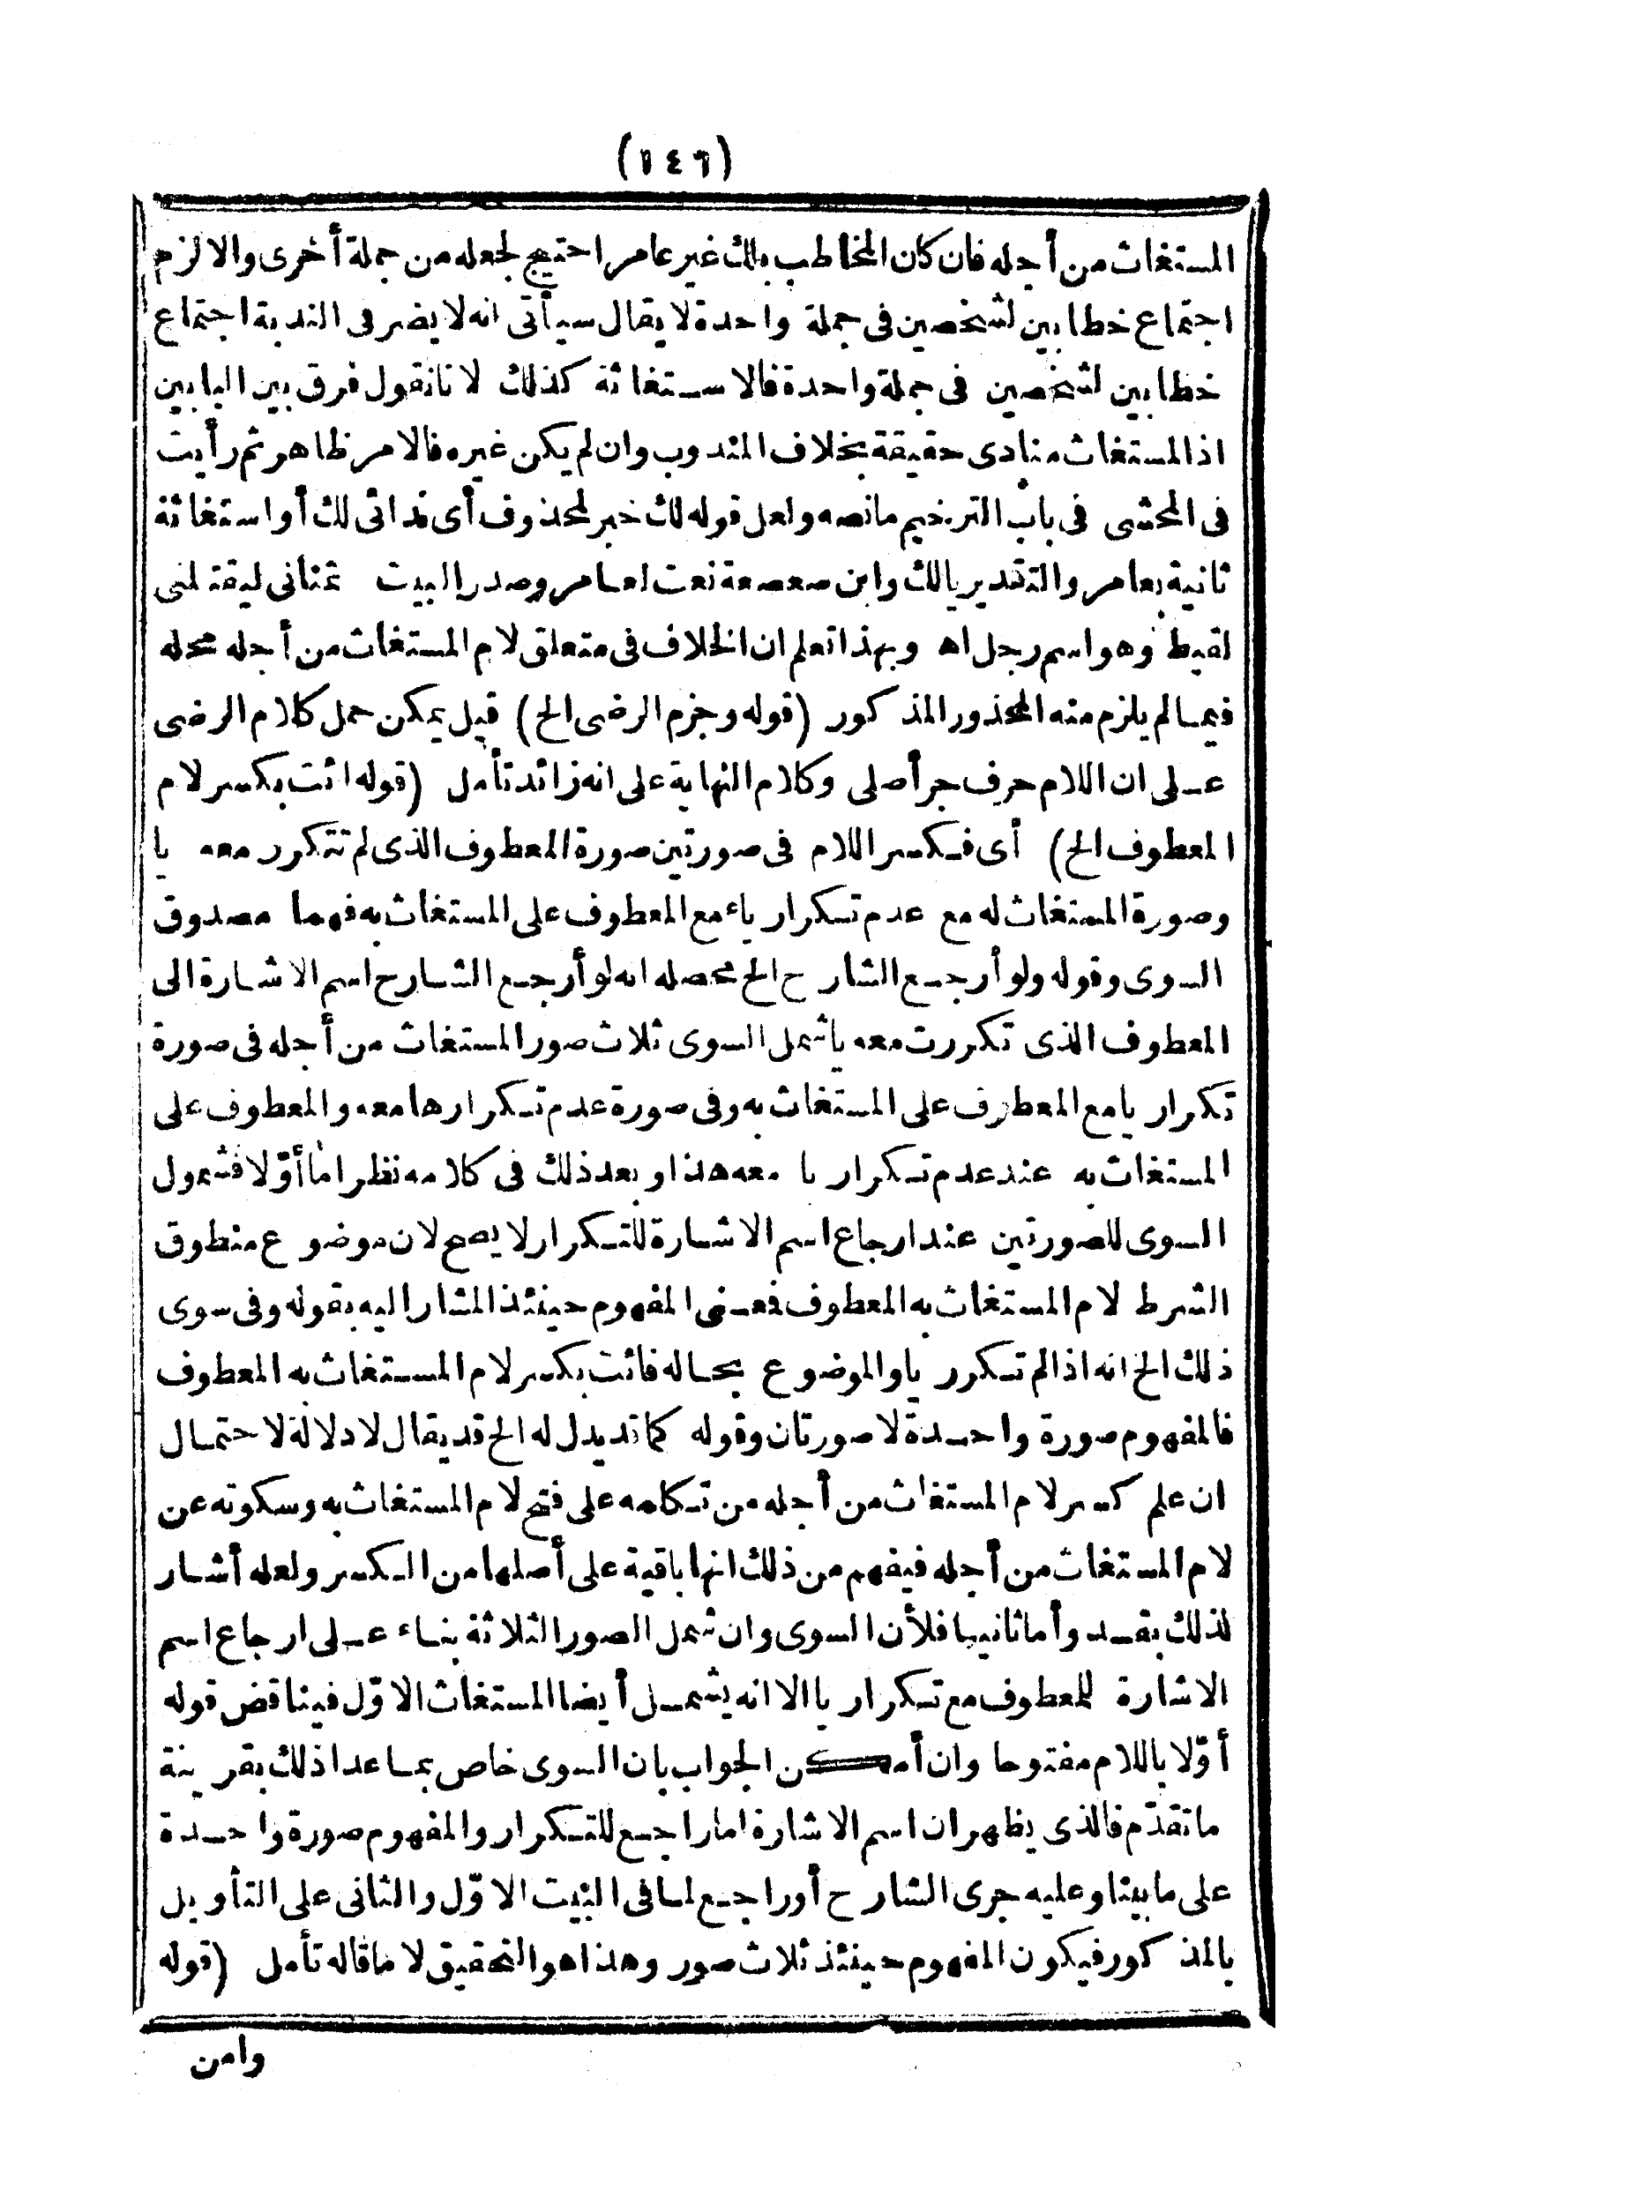 (١٤٦)
المستغاث من أجله فان كان المخاطب بلك غير عامر احتيج لجعله من جملة أخرى والالزم
اجتماع خطابين لشخصين فى جملة واحدة لا يقال سيأتى انه لا يضر فى الندبة اجتماع
خطابين لشخصين فى جملة واحدة فالاستغاثة كذلك لانا نقول فرق بين البابين
اذ المستغاث منادى حقيقة بخلاف المندوب وان لم يكن غيره فالامر ظاهر ثم رأيت
فى المحشى فى باب الترخيم مانصه ولعل قوله لك خبر لمحذوف أى ندائى لك أو استغاثة
ثانية بعامر والتقدير يالك وابن صعصعة نعت لعامر وصدر البيت تمنانى ليقتلنى
لقيط وهو اسم رجل اه وبهذا تعلم ان الخلاف فى متعلق لام المستغاث من أجله محله
فيما لم يلزم منه المحذور المذكور (قوله وجزم الرضى الخ) قيل يمكن حمل كلام الرضى
على ان اللام حرف جر أصلى وكلام النهاية على انه زائد تأمل (قوله ائت بكسر لام
المعطوف الخ) أى فكسر اللام فى صورتين صورة المعطوف الذى لم تتكرر معه يا
وصورة المستغاث له مع عدم تكرار ياء مع المعطوف على المستغاث به فهما مصدوق
السوى وقوله ولو أرجع الشارح الخ محصله انه لو أرجع الشارح اسم الاشارة الى
المعطوف الذى تكررت معه يا شمل السوى ثلاث صور المستغاث من أجله فى صورة
تكرار يا مع المعطوف على المستغاث به وفى صورة عدم تكرارها معه والمعطوف على
المستغاث به عند عدم تكرار يا معه هذا وبعد ذلك فى كلامه نظر اما أوّلا فشمول
السوى للصورتين عند ارجاع اسم الاشارة للتكرار لا يصح لان موضوع منطوق
الشرط لام المستغاث به المعطوف فمعنى المفهوم حينئذ المشار اليه بقوله وفى سوى
ذلك الخ انه اذا لم تكرر يا والموضوع بحاله فائت بكسر لام المستغاث به المعطوف
فالمفهوم صورة واحدة لا صورتان وقوله كما قد يدل له الخ قد يقال لا دلالة لاحتمال
ان علم كسر لام المستغاث من أجله من تكلمه على فتح لام المستغاث به وسكوته عن
لام المستغاث من أجله فيفهم من ذلك انها باقية على أصلها من الكسر ولعله أشار
لذلك بقد وأما ثانيا فلأن السوى وان شمل الصور الثلاثة بناء على ارجاع اسم
الاشارة للمعطوف مع تكرار يا الا انه يشمل أيضا المستغاث الاوّل فيناقض قوله
أوّلا باللام مفتوحا وان أمكن الجواب بان السوى خاص بما عدا ذلك بقرينة
ما تقدّم فالذى يظهر ان اسم الاشارة اما راجع للتكرار والمفهوم صورة واحدة
على ما بينا وعليه جرى الشارح أو راجع لما فى البيت الاوّل والثانى على التأويل
بالمذكور فيكون المفهوم حينئذ ثلاث صور وهذا هو التحقيق لا ما قاله تأمل (قوله
وامن